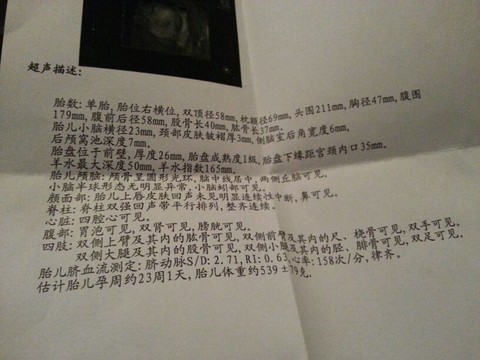 超声描述:
胎数: 单胎, 胎位右横位, 双顶径58mm, 枕额径69mm, 头围211mm, 胸径47mm, 腹围
179mm, 腹前后径58mm, 股骨长40mm, 肱骨长37mm.
胎儿小脑横径23mm, 颈部皮肤皱褶厚3mm, 侧脑室后角宽度6mm.
后颅窝池深度7mm.
胎盘位于前壁, 厚度26mm, 胎盘成熟度I级, 胎盘下缘距宫颈内口35mm.
羊水最大深度50mm, 羊水指数165mm.
胎儿颅脑: 颅骨呈圆形光环, 脑中线居中, 两侧丘脑可见.
小脑半球形态无明显异常, 小脑蚓部可见.
颜面部: 胎儿上唇皮肤回声未见明显连续性中断, 鼻可见.
脊柱: 脊柱双强回声带平行排列, 整齐连续.
心脏: 四腔心可见.
腹部: 胃泡可见, 双肾可见, 膀胱可见.
四肢: 双侧上臂及其内的肱骨可见, 双侧前臂及其内的尺、桡骨可见, 双手可见.
双侧大腿及其内的股骨可见, 双侧小腿及其内的胫、腓骨可见, 双足可见.
胎儿脐血流测定: 脐动脉S/D: 2.71, RI: 0.63, 心率: 158次/分, 律齐.
估计胎儿孕周约23周1天, 胎儿体重约539±79克.